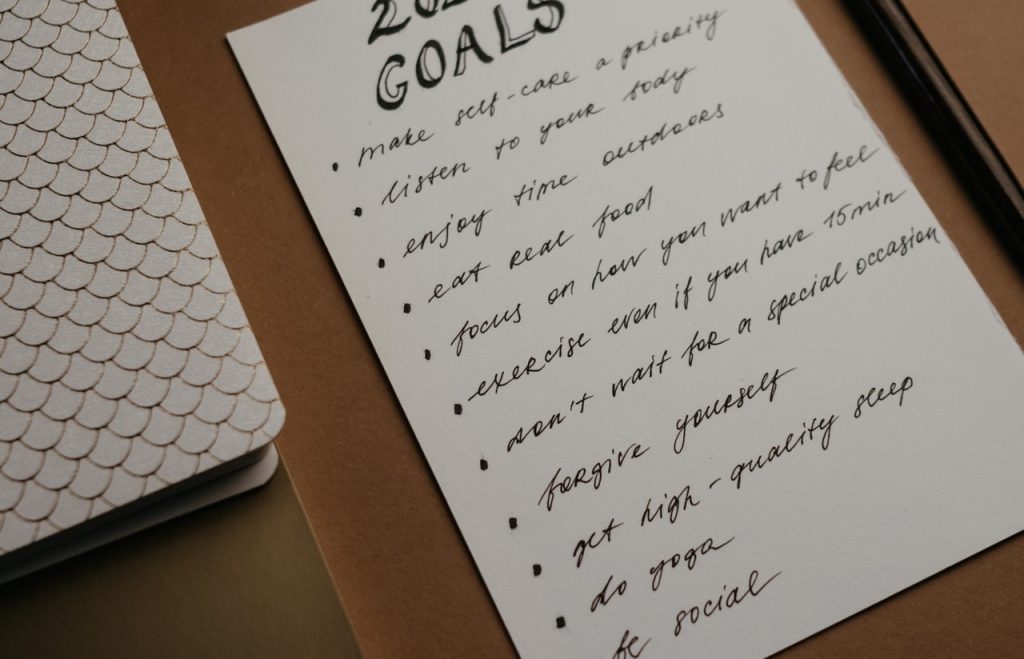 GOALS
• make self-care a priority
• listen to your body
• enjoy time outdoors
• eat real food
• focus on how you want to feel
• exercise even if you have 15min
• don't wait for a special occasion
• forgive yourself
• get high-quality sleep
• do yoga
be social